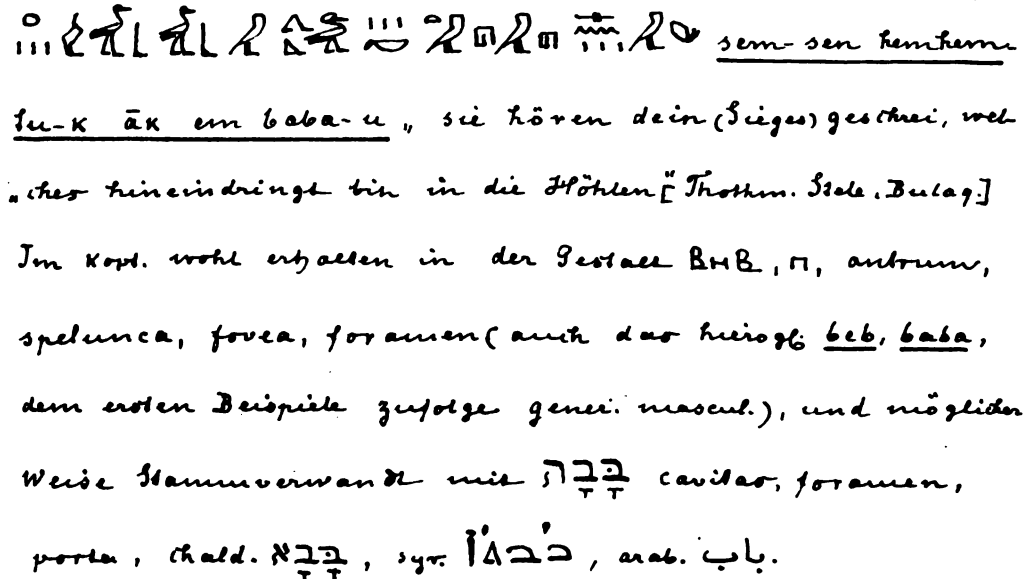 sem-sen hemhem
āk em baba-u „ sie hören dein (Sieges) geschrei, wel
„ches hineindringt bis in die Höhlen" [Thothm. Stele. Bulaq.]
Im Kopt. wohl erhalten in der Gestalt ⲂⲎⲂ, ⲡ, antrum,
spelunca, fovea, foramen (auch das hierogl. beb, baba,
dem ersten Beispiele zufolge gener. mascul.), und möglicher
Weise stammverwandt mit בָּבָה cavitas, foramen,
porta, chald. בָּבָא, syr. , arab. باب.